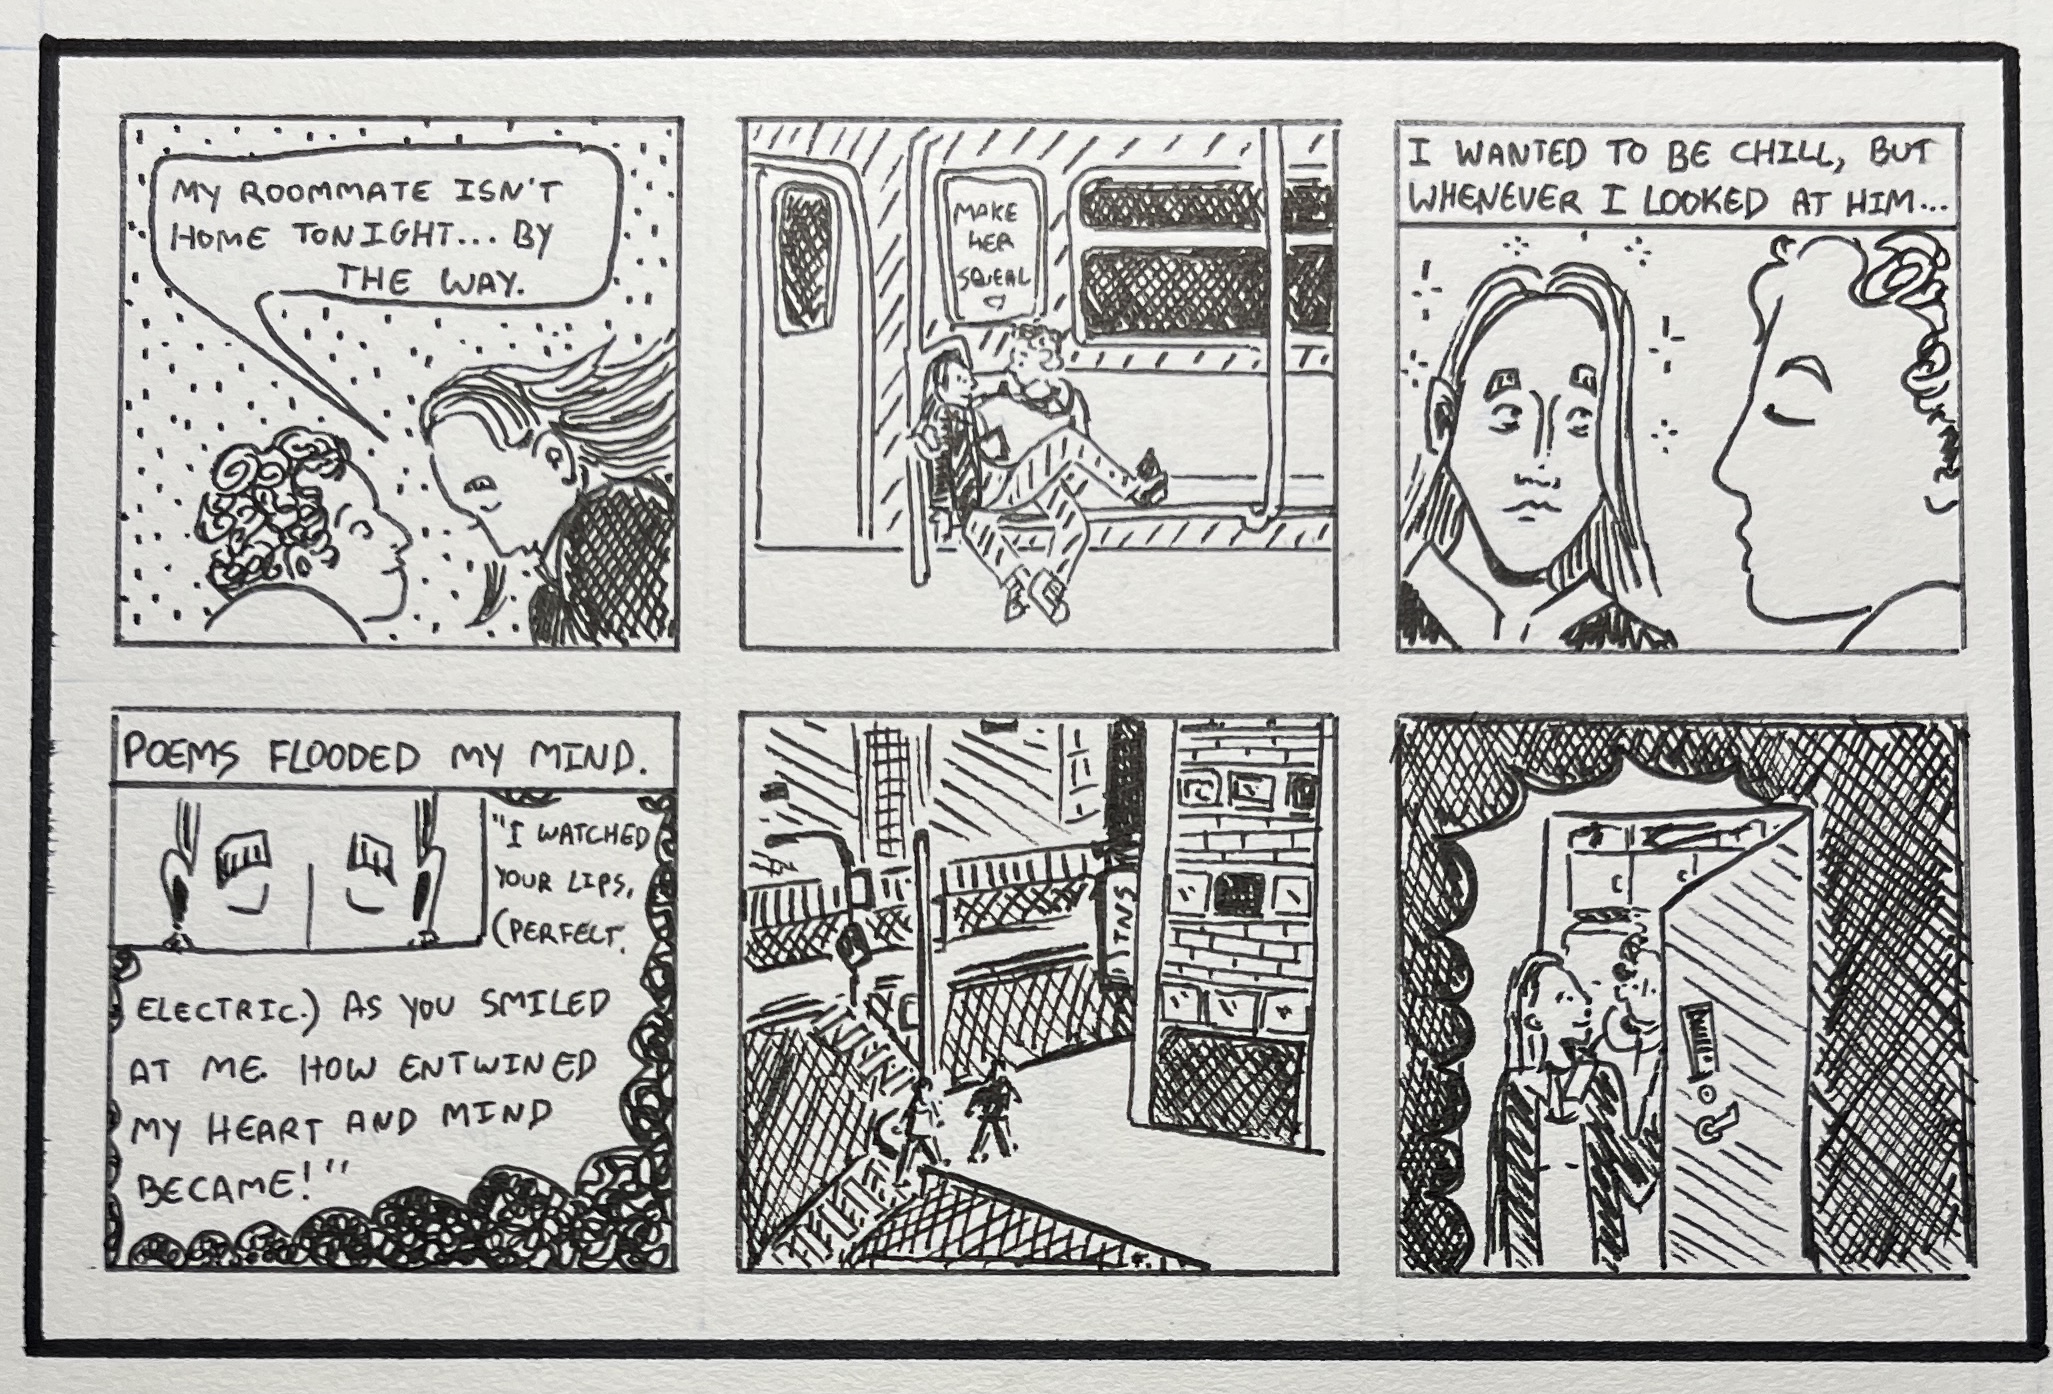 MY ROOMMATE ISN'T
HOME TONIGHT... BY
THE WAY.
MAKE
HER
SQUEAL
I WANTED TO BE CHILL, BUT
WHENEVER I LOOKED AT HIM...
POEMS FLOODED MY MIND.
"I WATCHED
YOUR LIPS,
(PERFECT,
ELECTRIC.) AS YOU SMILED
AT ME. HOW ENTWINED
MY HEART AND MIND
BECAME!"